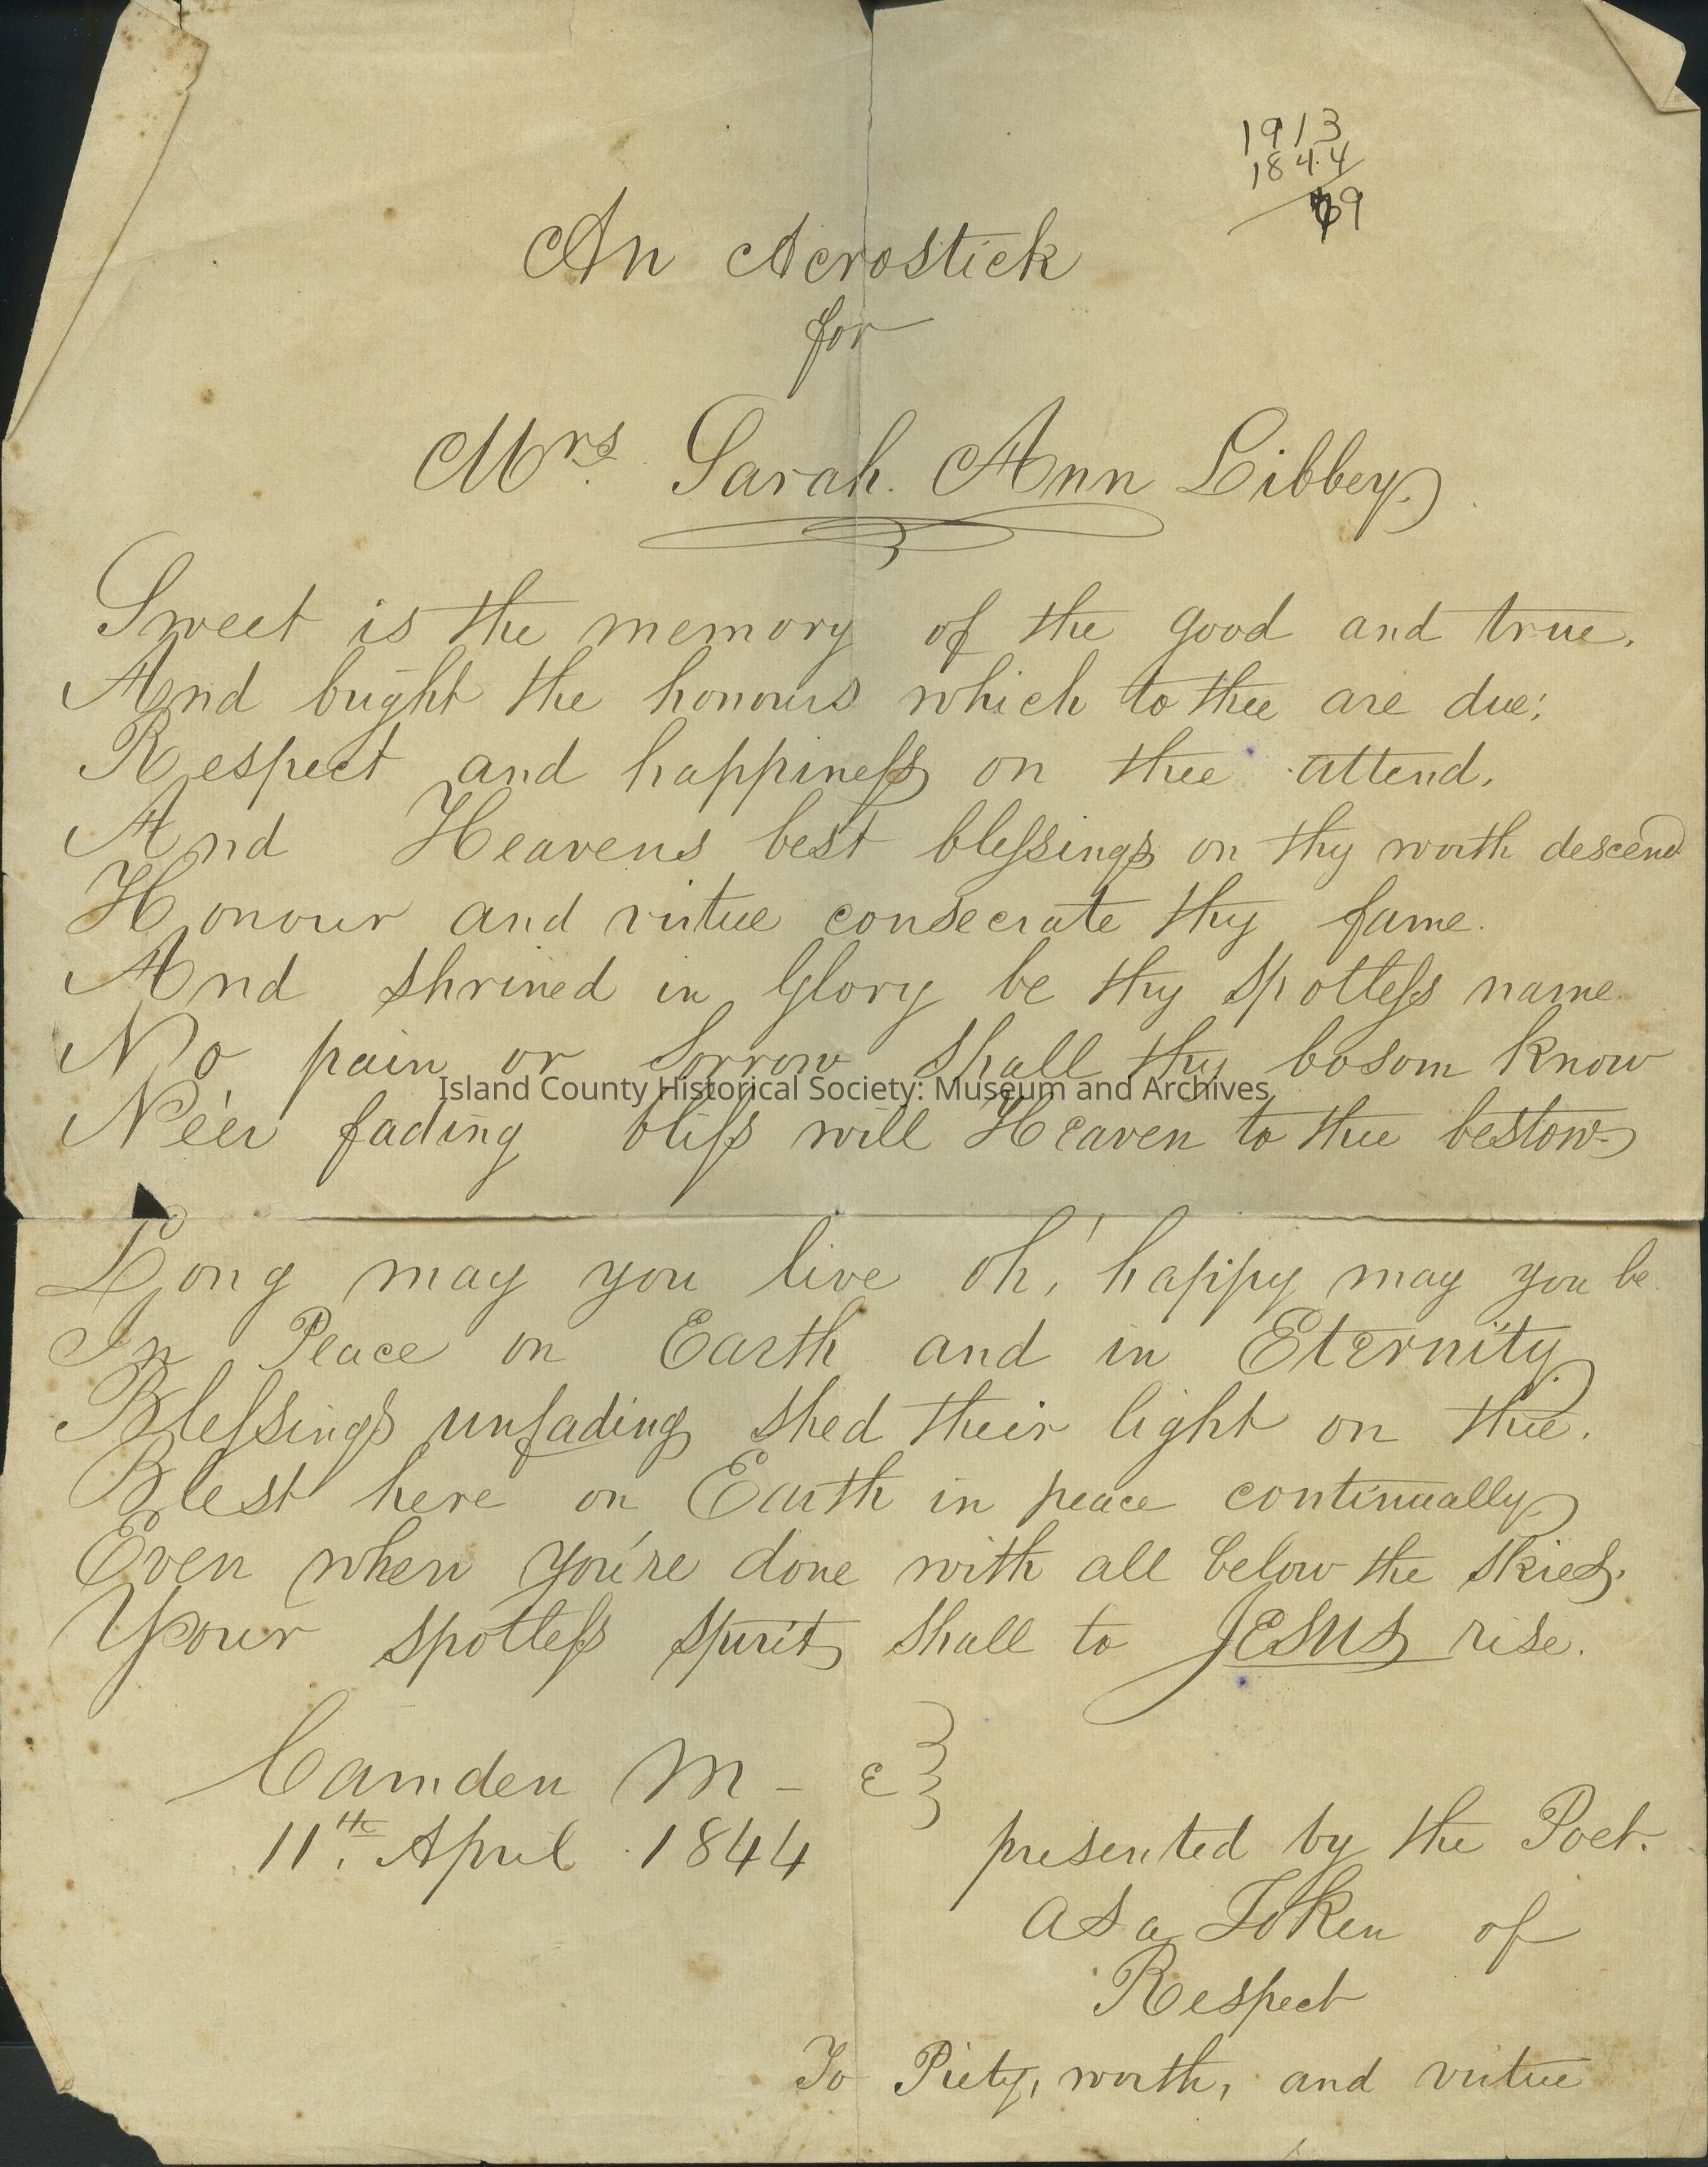 1913
1844
69
An Acrostick
for
Mrs. Sarah. Ann Libbey.
Sweet is the memory of the good and true.
And bright the honours which to thee are due;
Respect and happineſs on thee attend.
And Heavens best bleſsings on thy worth descend
Honour and virtue consecrate thy fame.
And shrined in Glory be thy spotleſs name.
No pain or sorrow shall thy bosom know
Ne'er fading bliſs will Heaven to thee bestow
Island County Historical Society: Museum and Archives
Long may you live oh,' happy may you be.
In Peace on Earth and in Eternity.
Bleſsings unfading shed their light on thee.
Blest here on Earth in peace continually.
Even when you're done with all below the skies.
Your spotleſs spirit shall to JESUS rise.
Camden M-e
11th. April 1844
presented by the Poet.
as a Token of
Respect
To Piety, worth, and virtue